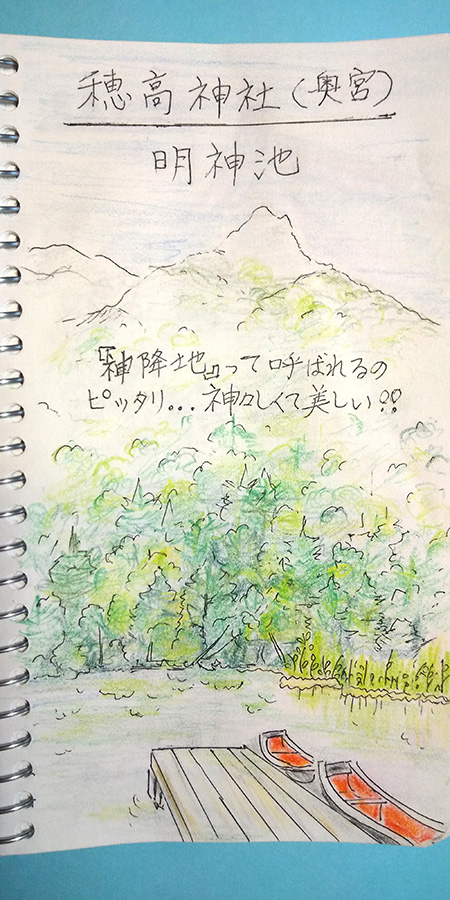 穂高神社(奥宮)
明神池
『神降地』って呼ばれるの
ピッタリ...神々しくて美しい!!